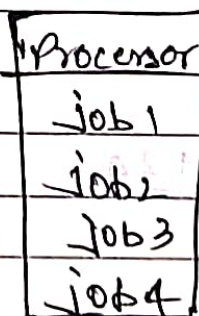 Processor
job 1
job2
Job3
job4